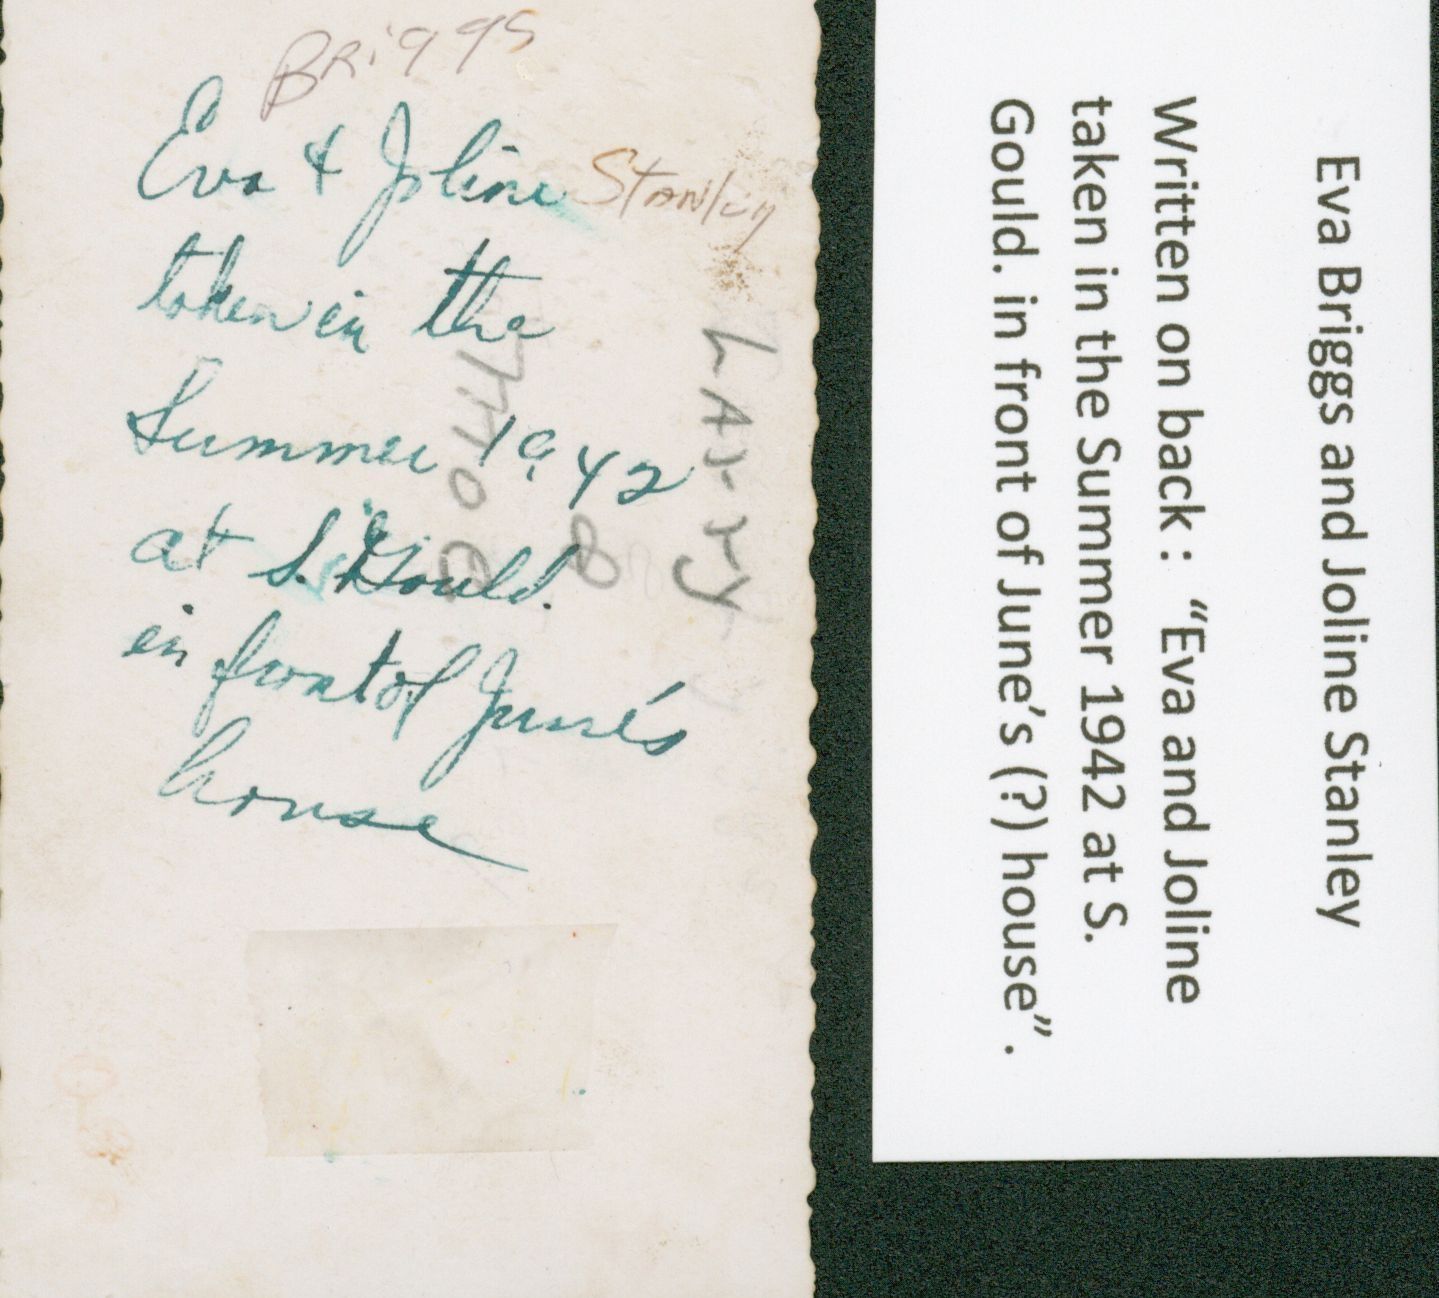 Briggs
Eva & Joline Stanley
taken in the
Summer 1942
at S. Gould.
in front of June's
house
Larry
8
Eva Briggs and Joline Stanley
Written on back : “Eva and Joline
taken in the Summer 1942 at S.
Gould. in front of June’s (?) house”.